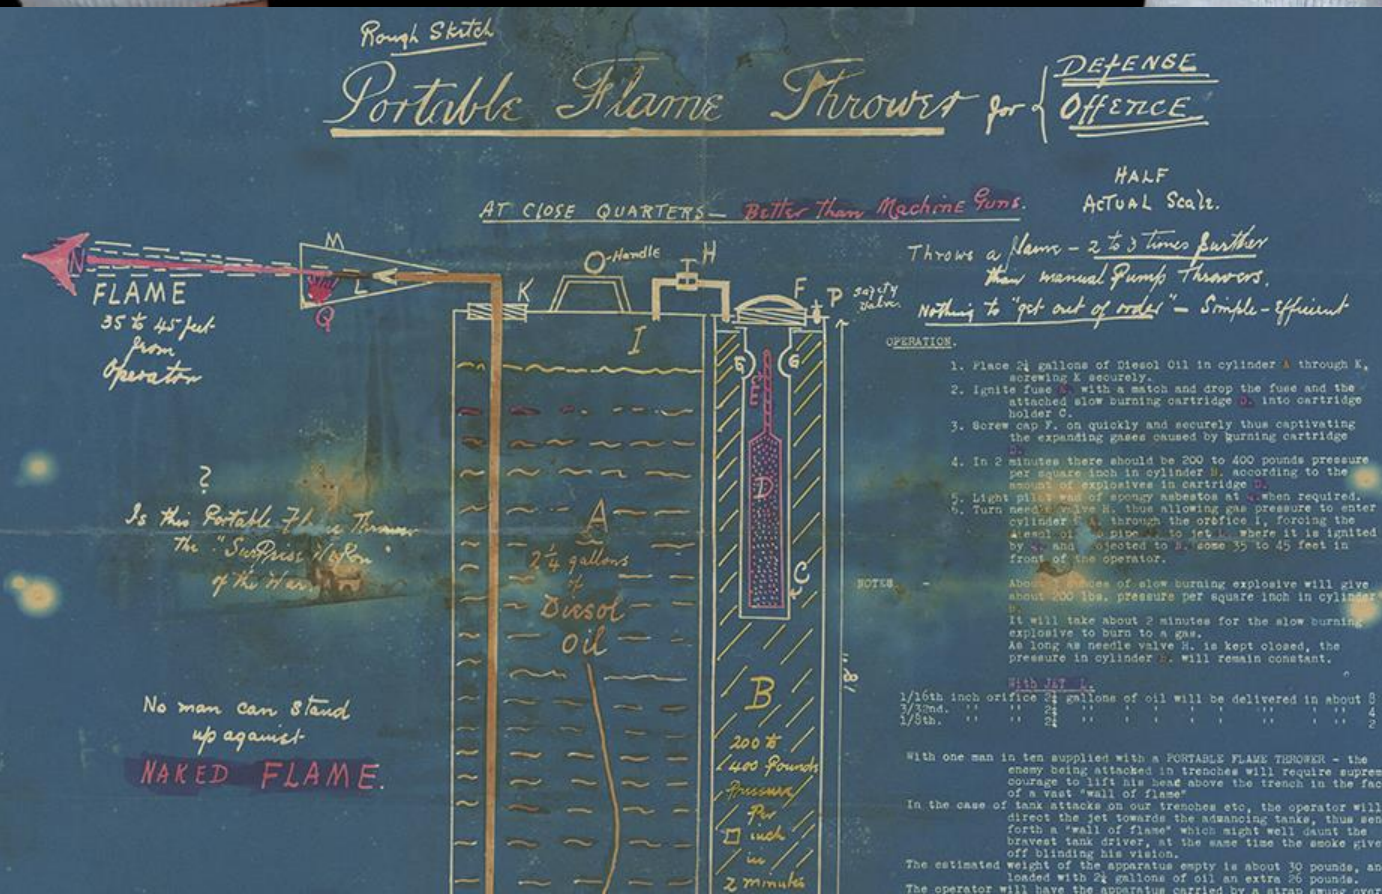 Rough Sketch
Portable Flame Thrower for { DEFENSE
OFFENCE
HALF
ACTUAL Scale.
AT CLOSE QUARTERS — Better than Machine Guns.
Throws a flame - 2 to 3 times further
than manual Pump throwers.
Nothing to "get out of order" - Simple - Efficient
M
N
L
Q
FLAME
35 to 45 feet
from
Operator
K
Handle
H
F
P
safety
valve.
I
G
G
E
D
C
A
2¼ gallons
of
Diesol
Oil
B
200 to
400 Pounds
Pressure
Per
□ inch
in
2 minutes
18"
?
Is this Portable Flame Thrower
the "Surprise Weapon"
of the War.
No man can stand
up against
NAKED FLAME.
OPERATION.
1. Place 2¼ gallons of Diesel Oil in cylinder A through K,
screwing K securely.
2. Ignite fuse with a match and drop the fuse and the
attached slow burning cartridge D. into cartridge
holder C.
3. Screw cap F. on quickly and securely thus captivating
the expanding gases caused by burning cartridge
D.
4. In 2 minutes there should be 200 to 400 pounds pressure
per square inch in cylinder B. according to the
amount of explosives in cartridge D.
5. Light pilot wad of spongy asbestos at when required.
6. Turn needle valve H. thus allowing gas pressure to enter
cylinder through the orifice I, forcing the
diesel oil pipe to jet where it is ignited
by and ejected to some 35 to 45 feet in
front of the operator.
NOTES -
About ounces of slow burning explosive will give
about 200 lbs. pressure per square inch in cylinder
B.
It will take about 2 minutes for the slow burning
explosive to burn to a gas.
As long as needle valve H. is kept closed, the
pressure in cylinder B. will remain constant.
With JET L.
1/16th inch orifice 2¼ gallons of oil will be delivered in about 8
3/32nd. " " 2¼ " " " " " " " 4
1/8th. " " 2¼ " " " " " " " 2
With one man in ten supplied with a PORTABLE FLAME THROWER - the
enemy being attacked in trenches will require suprem
courage to lift his head above the trench in the fac
of a vast "wall of flame"
In the case of tank attacks on our trenches etc, the operator will
direct the jet towards the advancing tanks, thus sen
forth a "wall of flame" which might well daunt the
bravest tank driver, at the same time the smoke give
off blinding his vision.
The estimated weight of the apparatus empty is about 30 pounds, an
loaded with 2¼ gallons of oil an extra 26 pounds.
The operator will have the apparatus carried by a strap swung over